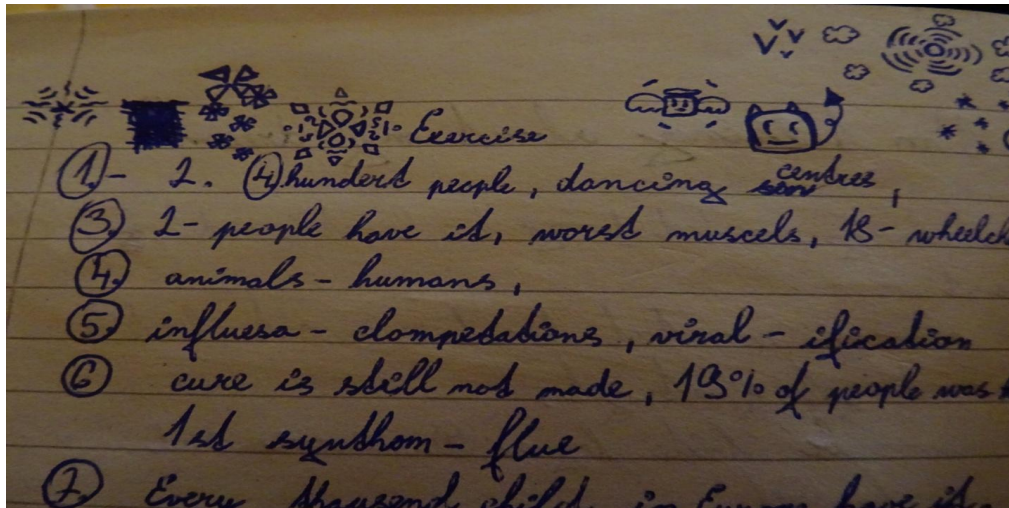 Exercise
1.- 2. 4. hundert people, dancing centres,
3. 2- people have it, worst muscels, 18- wheelch
4. animals - humans,
5. influesa - clompetations, viral - ification
6 cure is still not made, 19% of people was
1st synthom - flue
7. Every thausend child in Europe have it